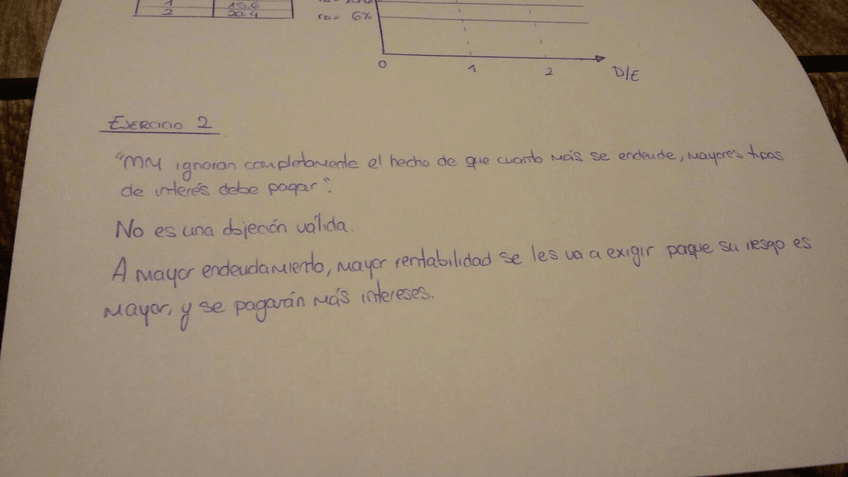 1 15.6
2 20.4
rD= 6%
0 1 2 D/E
EJERCICIO 2
"MM ignoran completamente el hecho de que cuanto más se endeude, mayores tipos
de interés debe pagar".
No es una objeción válida.
A mayor endeudamiento, mayor rentabilidad se les va a exigir paque su riesgo es
mayor, y se pagarán más intereses.